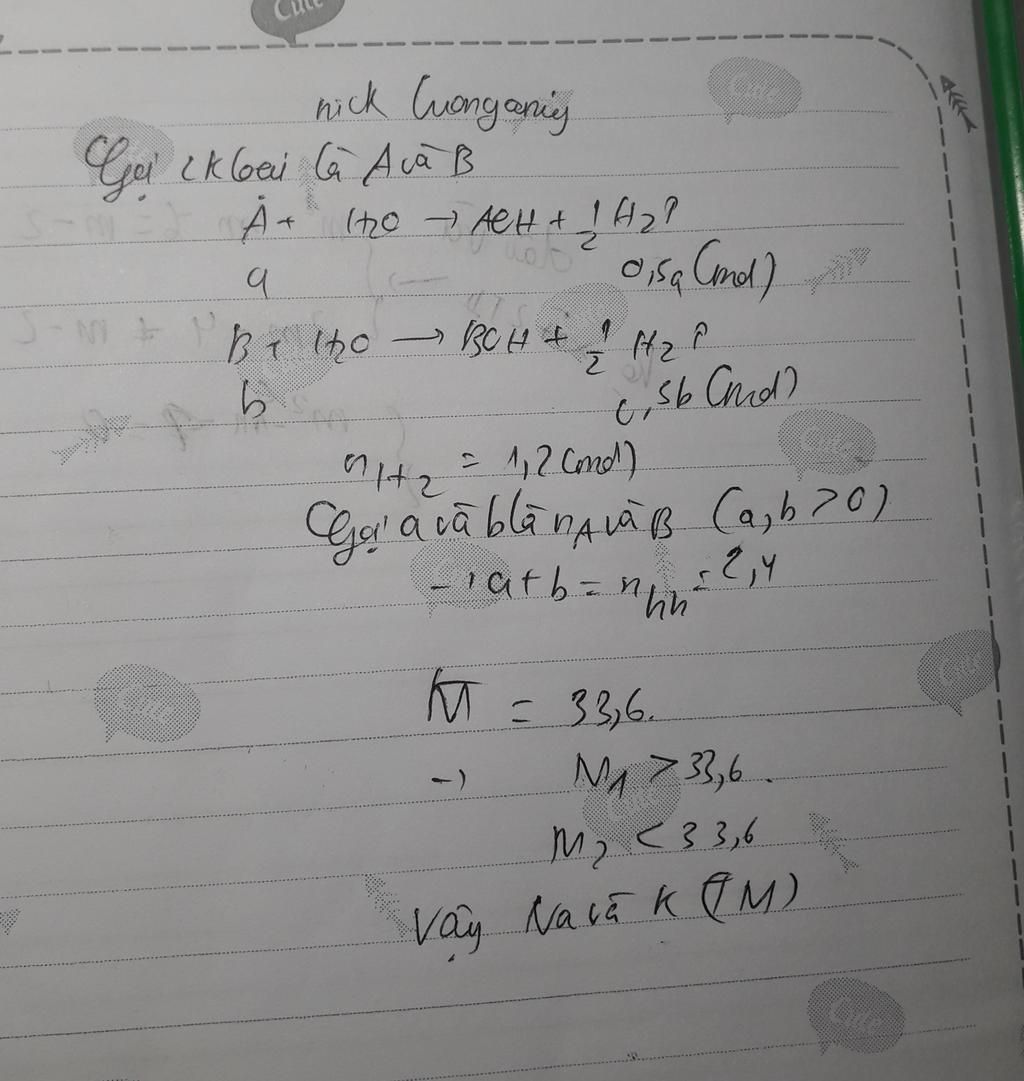 Cute
nick luongamiy
Gọi 2 kloai là A và B
A + H2O → AOH + 1/2 H2↑
a 0,5a (mol)
B + H2O → BOH + 1/2 H2↑
b 0,5b (mol)
nH2 = 1,2 (mol)
Gọi a và b là nA và B (a,b > 0)
→ a + b = nhh = 2,4
M̅ = 33,6.
→ M1 > 33,6.
M2 < 33,6
Vậy Na và K (TM)